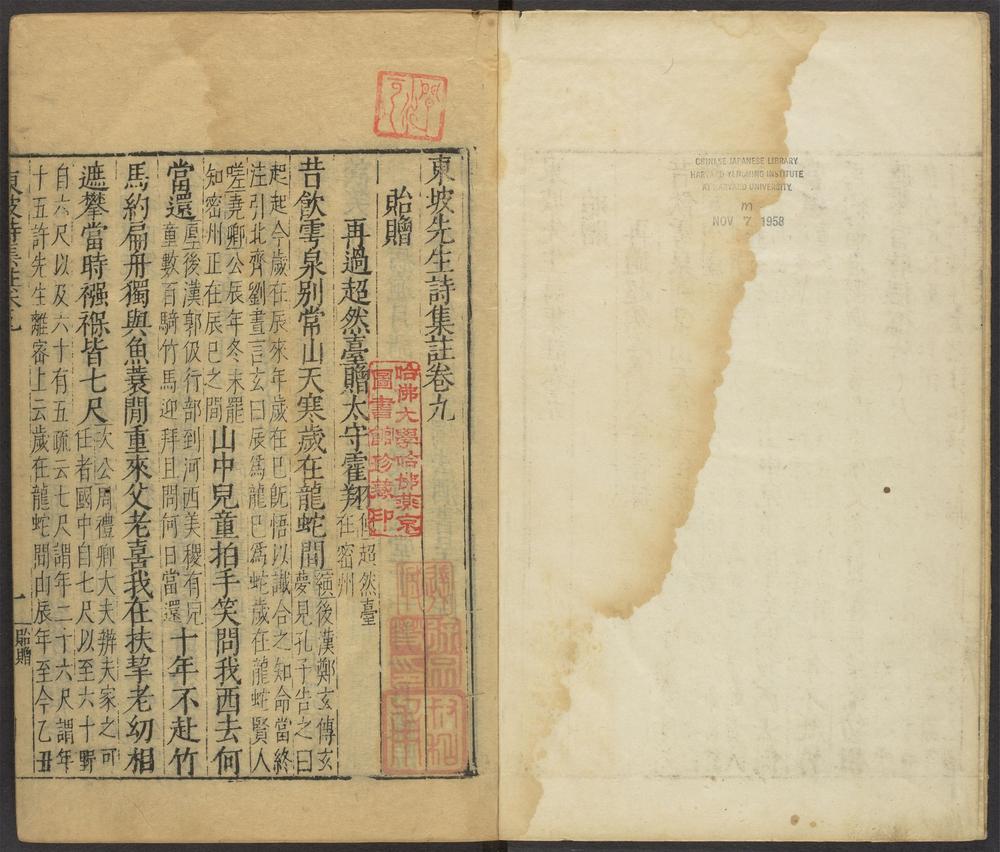 東坡先生詩集註卷九
貽贈
再過超然臺贈太守霍翔
超然臺
在密州
昔飲雩泉別常山天寒歲在龍蛇間
縯後漢鄭玄傳玄
夢見孔子告之曰
起起今歲在辰來年歲在巳既悟以讖合之知命當終
注引北齊劉晝言玄曰辰爲龍巳爲蛇歲在龍蛇賢人
嗟堯卿公辰年冬末罷
知密州正在辰巳之間
山中兒童拍手笑問我西去何
當還
厚後漢郭伋行部到河西美稷有兒
童數百騎竹馬迎拜且問何日當還
十年不赴竹
馬約扁舟獨與魚蓑閒重來父老喜我在扶挈老幼相
遮攀當時襁褓皆七尺
次公周禮卿大夫辨夫家之可
任者國中自七尺以至六十野
自六尺以及六十有五疏云七尺謂年二十六尺謂年
十五許先生離密上云歲在龍蛇間由辰年至今乙丑
東坡詩集註卷九
一
貽贈
哈佛大學哈佛燕京
圖書館珍藏印
CHINESE JAPANESE LIBRARY
HARVARD YENCHING INSTITUTE
AT HARVARD UNIVERSITY
m
NOV 7 1958